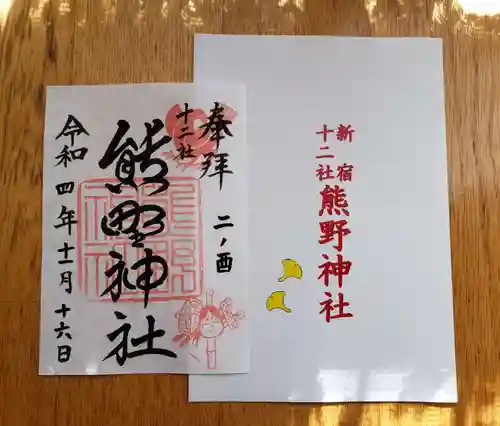 奉拝
二ノ酉
十二社
熊野神社
令和四年十一月十六日
新宿
十二社
熊野神社